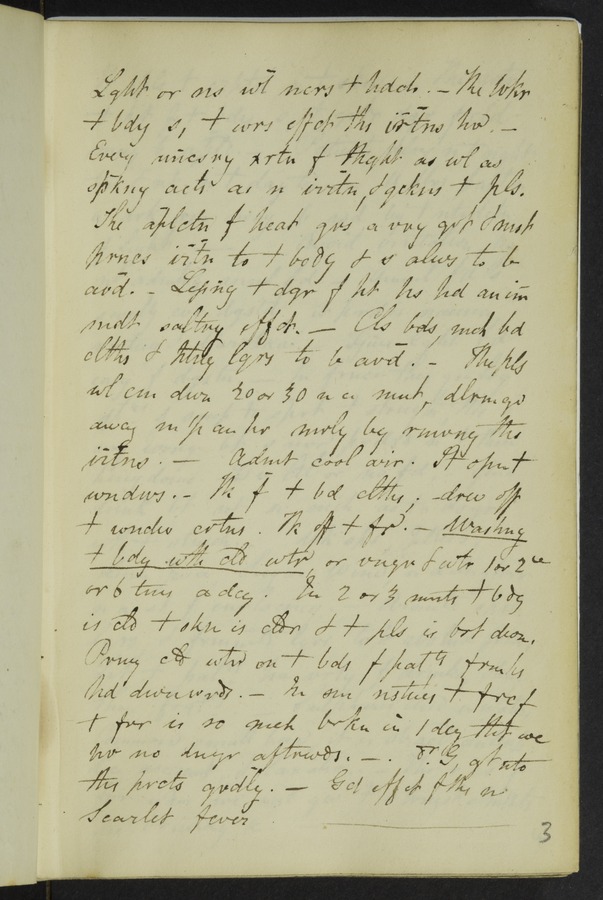 Lght or ns wl ncrs + hdch. – The wkr
+ bdy s, + wrs effct ths irrtns hv. –
Every uncsry xrtn f thght as wl as
spkng acts as n irrtn, & qckns + pls.
The aplctn f heat gvs a vry grt & msh
irrtn to + body & s alws to b
avd. – + dgr f ht hs hd an imm
effct. – Cls bds, mch bd
clths & lyrs to b avd. – The pls
wl cm dwn 20 or 30 n a mnt, dlrm gs
away in ½ an hr mrly by rmvng ths
irrtns. – Admt cool air. St opn +
wndws. – Tk f + bd clths; – drw off
+ wndw crtns. Tk off + fr. – Washng
+ bdy wth cld wtr, or vngr & wtr 1 or 2ce
or 6 tms a day. In 2 or 3 mnts + bdy
is cld + skn is cldr & + pls is bt dwn.
cld wtr on + bds f patts frm hs
hd dwnwrds. – In sm nstncs + frc f
+ fvr is so mch brkn in 1 day tht we
hv no dngr aftrwds. –. Dr. G, gt nto
ths prcts grdly. – Gd effct f ths n
Scarlet fever
3